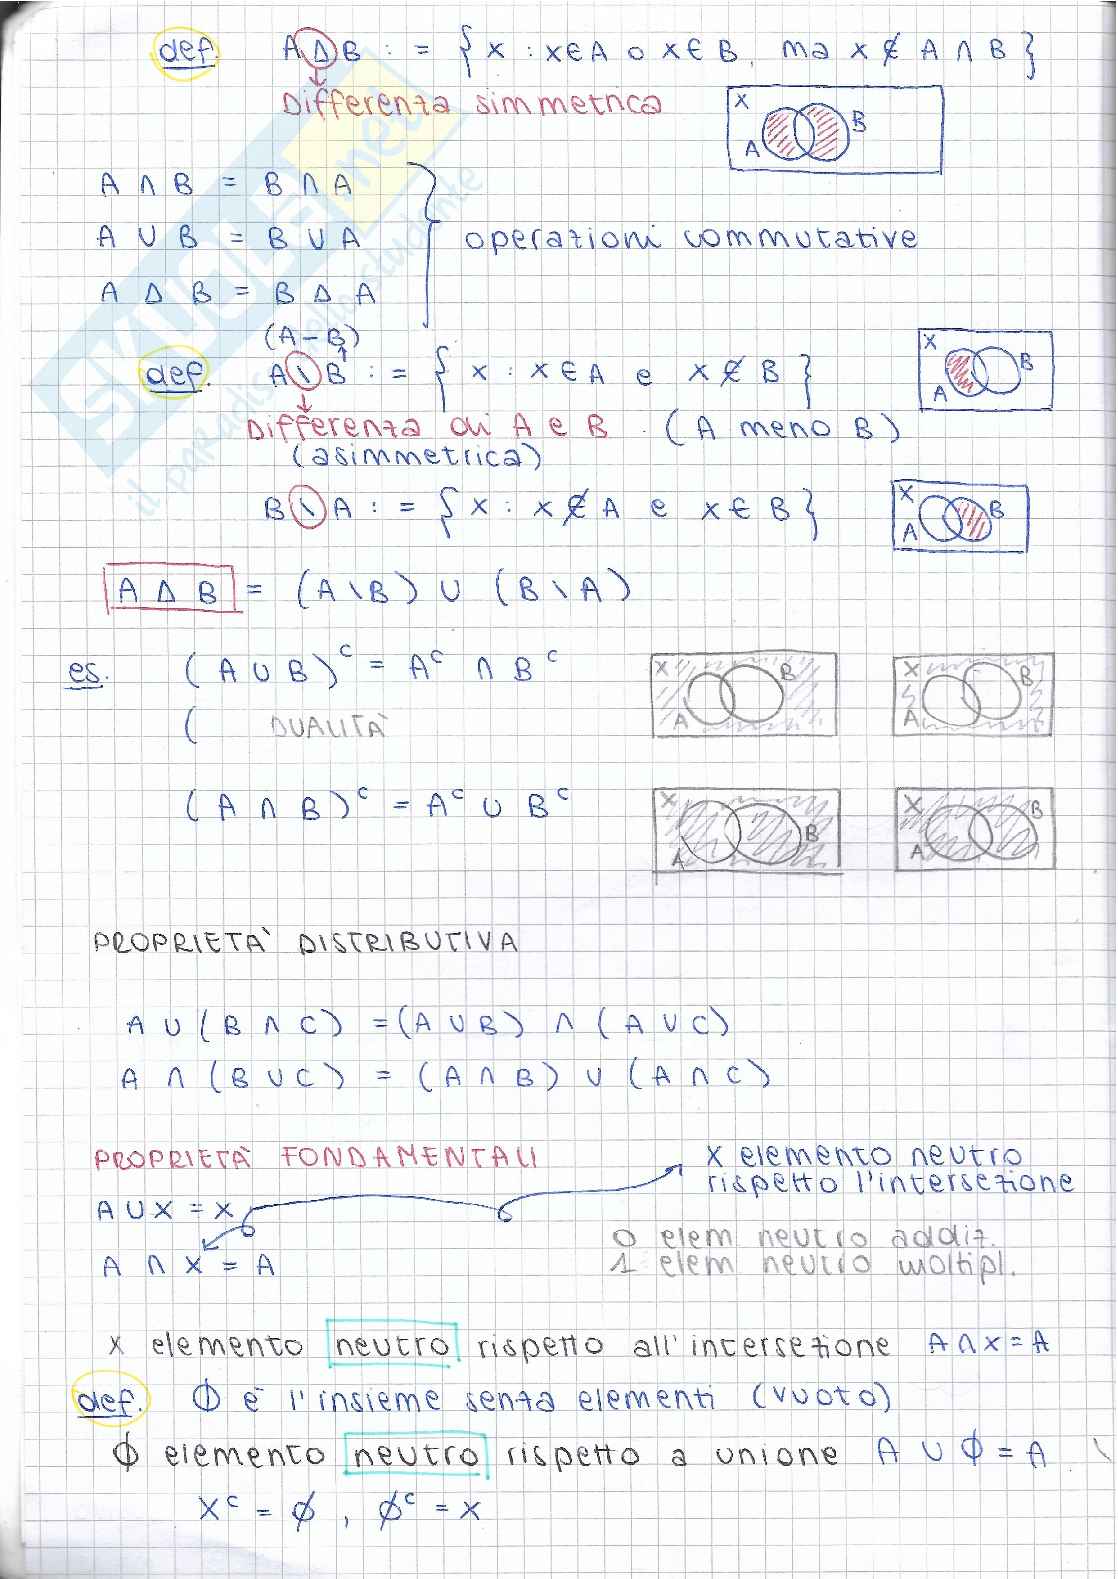 def. A Δ B := { x : x∈A o x∈B, ma x ∉ A ∩ B }
Differenza simmetrica
X
A B
A ∩ B = B ∩ A
A ∪ B = B ∪ A
operazioni commutative
A Δ B = B Δ A
(A-B)
def. A \ B := { x : x∈A e x ∉ B }
X
A B
Differenza di A e B. (A meno B)
(asimmetrica)
B \ A := { x : x∉A e x∈B }
X
A B
A Δ B = (A\B) ∪ (B\A)
es. (A ∪ B)ᶜ = Aᶜ ∩ Bᶜ
X B
A
X B
A
( DUALITÀ
(A ∩ B)ᶜ = Aᶜ ∪ Bᶜ
X
A B
X B
A
PROPRIETÀ DISTRIBUTIVA
A ∪ (B ∩ C) = (A ∪ B) ∩ (A ∪ C)
A ∩ (B ∪ C) = (A ∩ B) ∪ (A ∩ C)
PROPRIETÀ FONDAMENTALI
X elemento neutro
rispetto l'intersezione
A ∪ X = X
0 elem neutro addiz.
A ∩ X = A
1 elem neutro moltipl.
X elemento neutro rispetto all'intersezione A ∩ X = A
def. ∅ è l'insieme senza elementi (vuoto)
∅ elemento neutro rispetto a unione A ∪ ∅ = A
Xᶜ = ∅, ∅ᶜ = X
SKUOLA.net
il paradiso dello studente